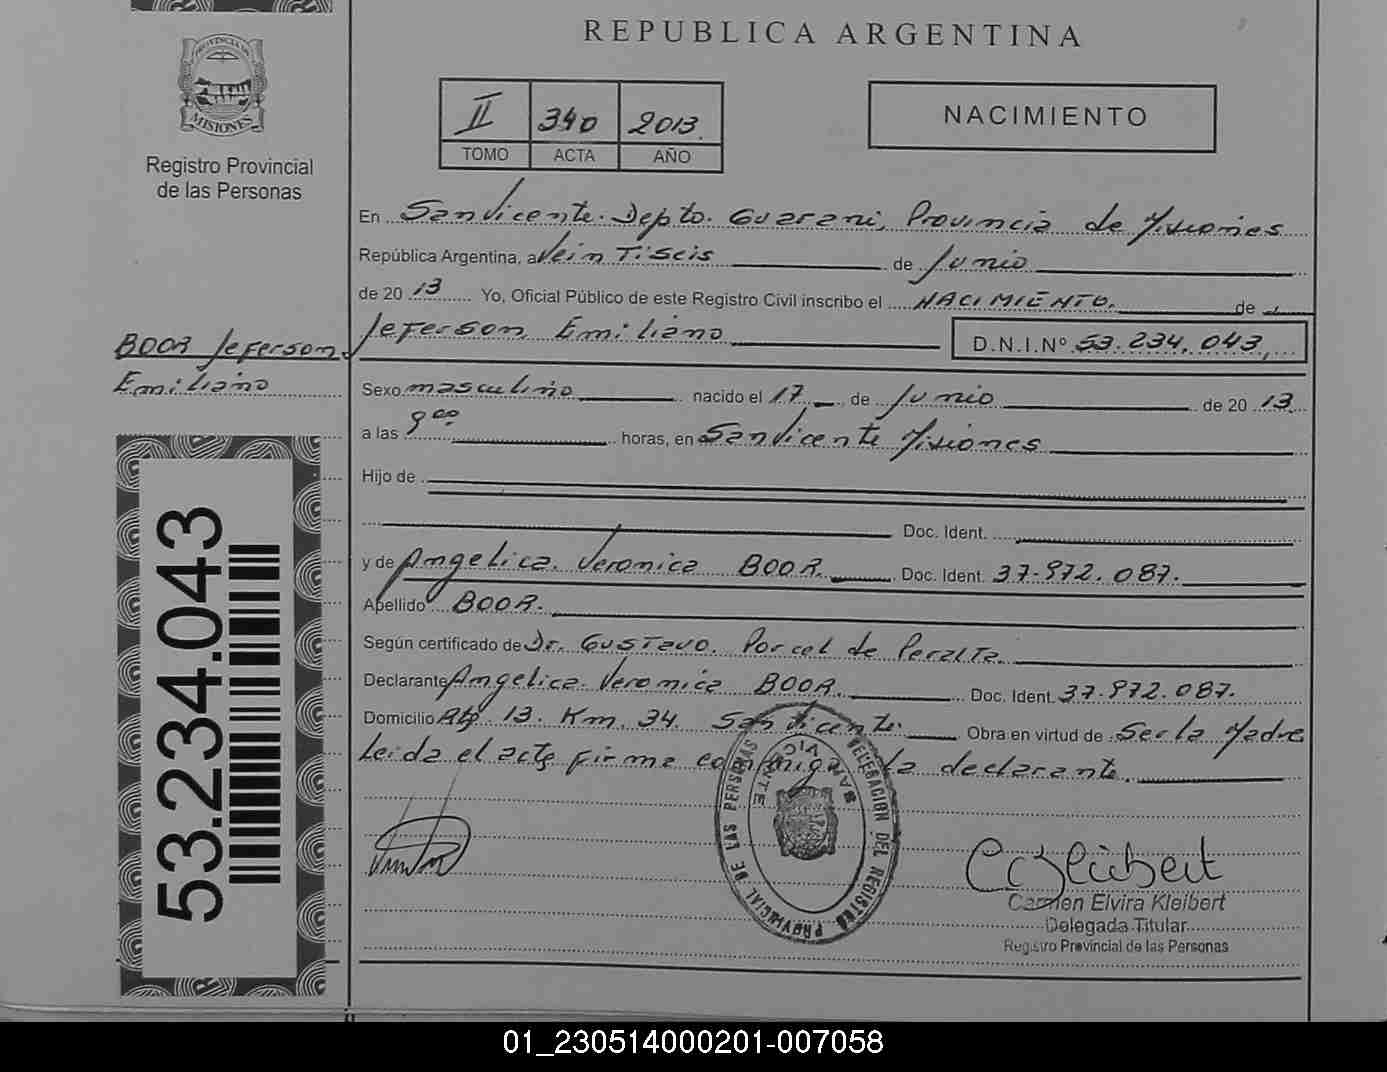 REPUBLICA ARGENTINA
PROVINCIA DE
MISIONES
Registro Provincial
de las Personas
II 340 2013.
TOMO ACTA AÑO
NACIMIENTO
En San Vicente. Depto. Guarani, Provincia de Misiones
República Argentina, a Vein Tiseis de Junio
de 20 13 Yo, Oficial Público de este Registro Civil inscribo el NACIMIENTO. de
Jeferson Emiliano D.N.I.Nº 53.234.043,
BOOR Jeferson
Emiliano
Sexo masculino nacido el 17 de Junio de 20 13.
a las 9 00 horas, en San Vicente Misiones
Hijo de
Doc. Ident.
y de Angelica Veronica BOOR. Doc. Ident. 37.972.087.
Apellido BOOR.
Según certificado de Dr. Gustavo Porcel de Peralta.
Declarante Angelica Veronica BOOR. Doc. Ident. 37.972.087.
Domicilio Rta 13. Km. 34. San Vicente. Obra en virtud de Ser la Madre
Leida el acta firma conmigo la declarante.
53.234.043
DELEGACION DEL REGISTRO PROVINCIAL DE LAS PERSONAS
SAN VICENTE
C Kleibert
Carmen Elvira Kleibert
Delegada Titular
Registro Provincial de las Personas
01_230514000201-007058